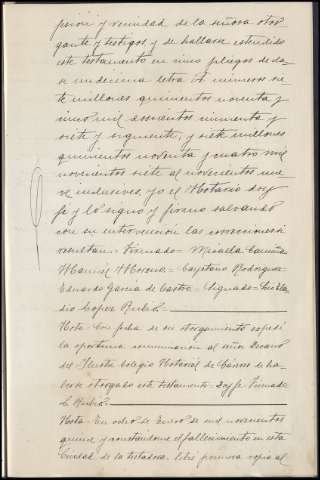 pción y vecindad de la señora otor
gante y testigos y de hallarse extendido
este testamento en cinco pliegos de la
undécima letra A números sie
te millones quinientos noventa y
cinco mil doscientos noventa y
siete y siguiente, y siete millones
quinientos noventa y cuatro mil
novecientos siete al novecientos nue
ve inclusives, yo el Notario doy
fe y lo signo y firmo salvando
con su intervención las correcciones
resultan = Firmado = Micaela
Manuel Moreno = Cayetano Rodríguez =
Eduardo García de Castro = Signado =
dio López Rubio.
Nota = Con fecha de su otorgamiento expedí
la oportuna comunicación al señor Decano
del Ilustre Colegio Notarial de Cáceres de ha
berse otorgado este testamento = Doy fe Firmado
L. Rubio.
Nota = En ocho de Enero de mil novecientos
quince y constándome el fallecimiento en esta
Ciudad de la testadora, libré primera copia al